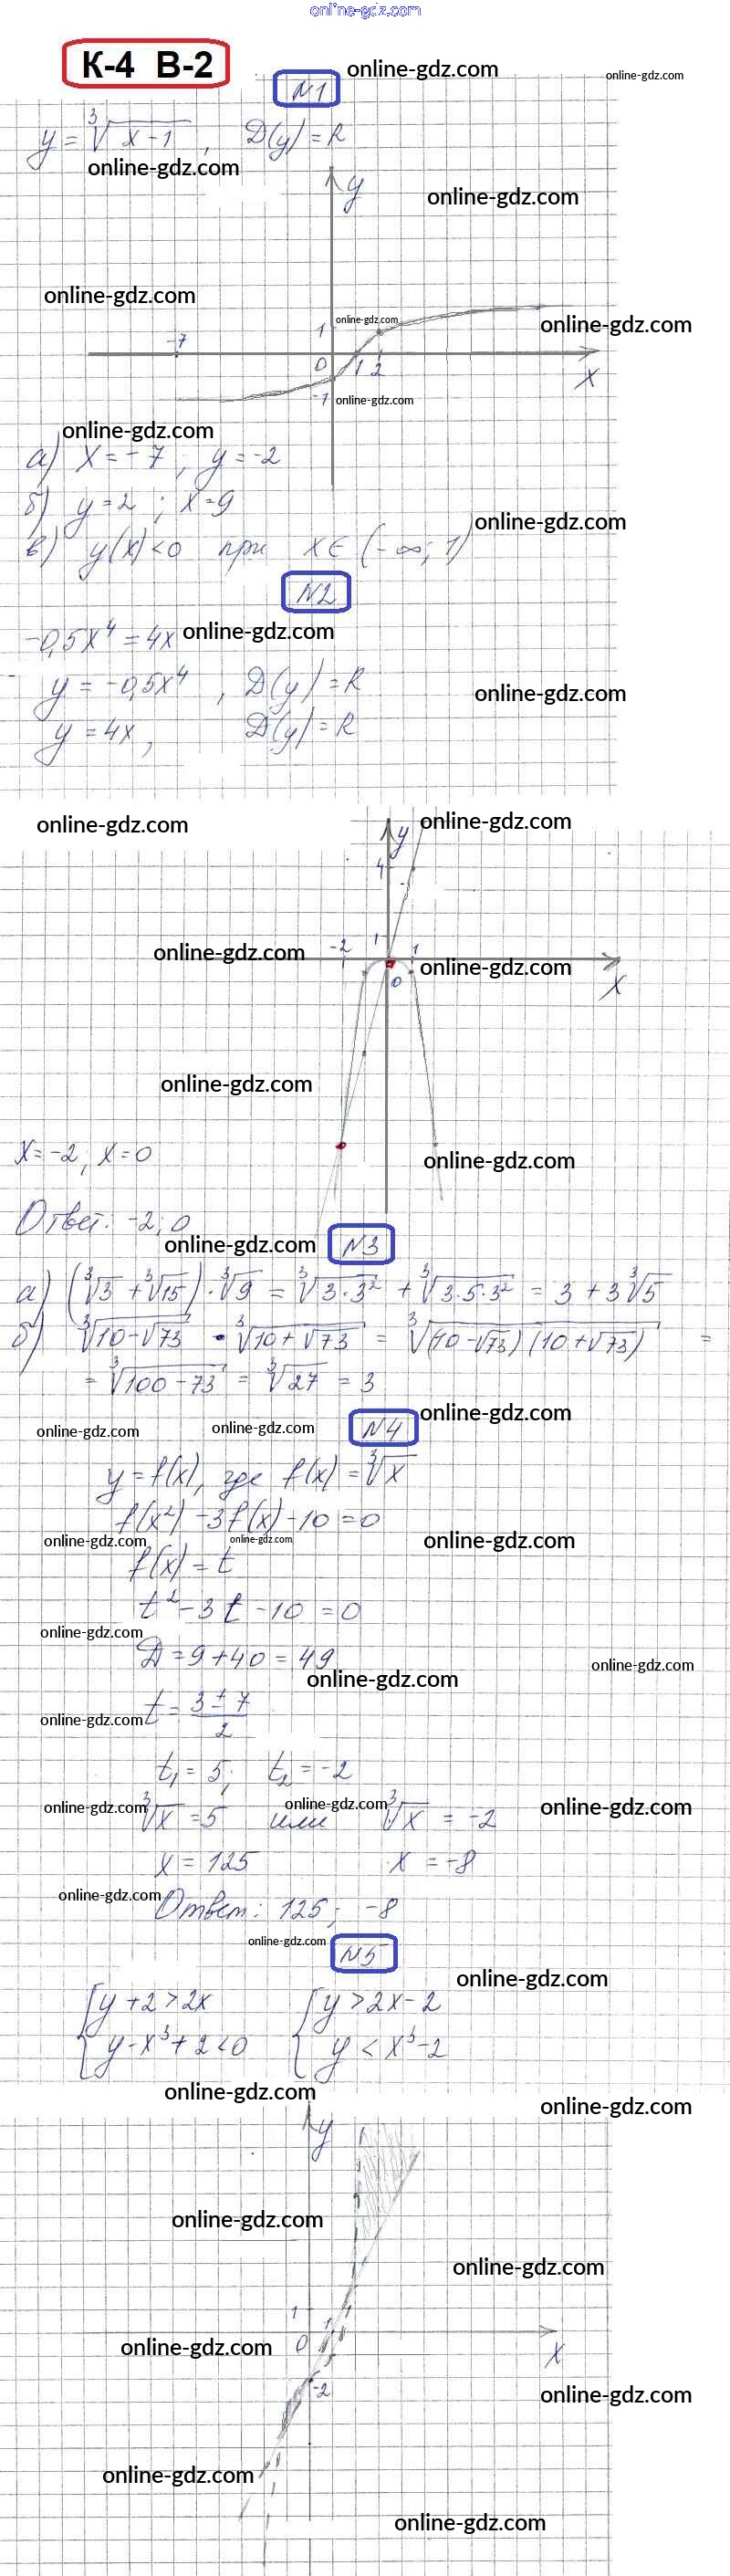 online-gdz.com
К-4 В-2
online-gdz.com
online-gdz.com
N1
y = ∛(x-1), D(y)=R
online-gdz.com
y
online-gdz.com
online-gdz.com
online-gdz.com
online-gdz.com
-7 1 0 1 2 x
-1
online-gdz.com
online-gdz.com
а) x=-7; y=-2
б) y=2; x=9
online-gdz.com
в) y(x)<0 при x∈(-∞; 1)
N2
-0,5x⁴=4x
online-gdz.com
y=-0,5x⁴, D(y)=R
online-gdz.com
y=4x, D(y)=R
online-gdz.com
online-gdz.com
y
4
-2 1 1
online-gdz.com
online-gdz.com
0 x
online-gdz.com
x=-2; x=0
online-gdz.com
Ответ: -2; 0
online-gdz.com
N3
а) (∛3 + ∛15)·∛9 = ∛(3·3²) + ∛(3·5·3²) = 3 + 3∛5
б) ∛(10-√73) · ∛(10+√73) = ∛((10-√73)(10+√73)) =
= ∛(100-73) = ∛27 = 3
online-gdz.com
online-gdz.com
online-gdz.com
N4
y=f(x), где f(x)=∛x
f(x²)-3f(x)-10=0
online-gdz.com
online-gdz.com
online-gdz.com
f(x)=t
t²-3t-10=0
online-gdz.com
D=9+40=49
online-gdz.com
online-gdz.com
online-gdz.com
t=(3±7)/2
t₁=5; t₂=-2
online-gdz.com
online-gdz.com
online-gdz.com
∛x=5 или ∛x=-2
x=125 x=-8
online-gdz.com
Ответ: 125; -8
online-gdz.com
N5
online-gdz.com
{y+2>2x {y>2x-2
{y-x³+2<0 {y<x³-2
online-gdz.com
online-gdz.com
y
online-gdz.com
online-gdz.com
1
0 1 x
online-gdz.com
-2
online-gdz.com
online-gdz.com
online-gdz.com